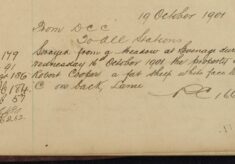 19 October 1901
From D C C
To All Stations
Strayed from a meadow at Stevenage
Wednesday 16th October 1901 the property of
Robert Cooper a fat sheep white face
C on back, Lame
179
91
186
184
57